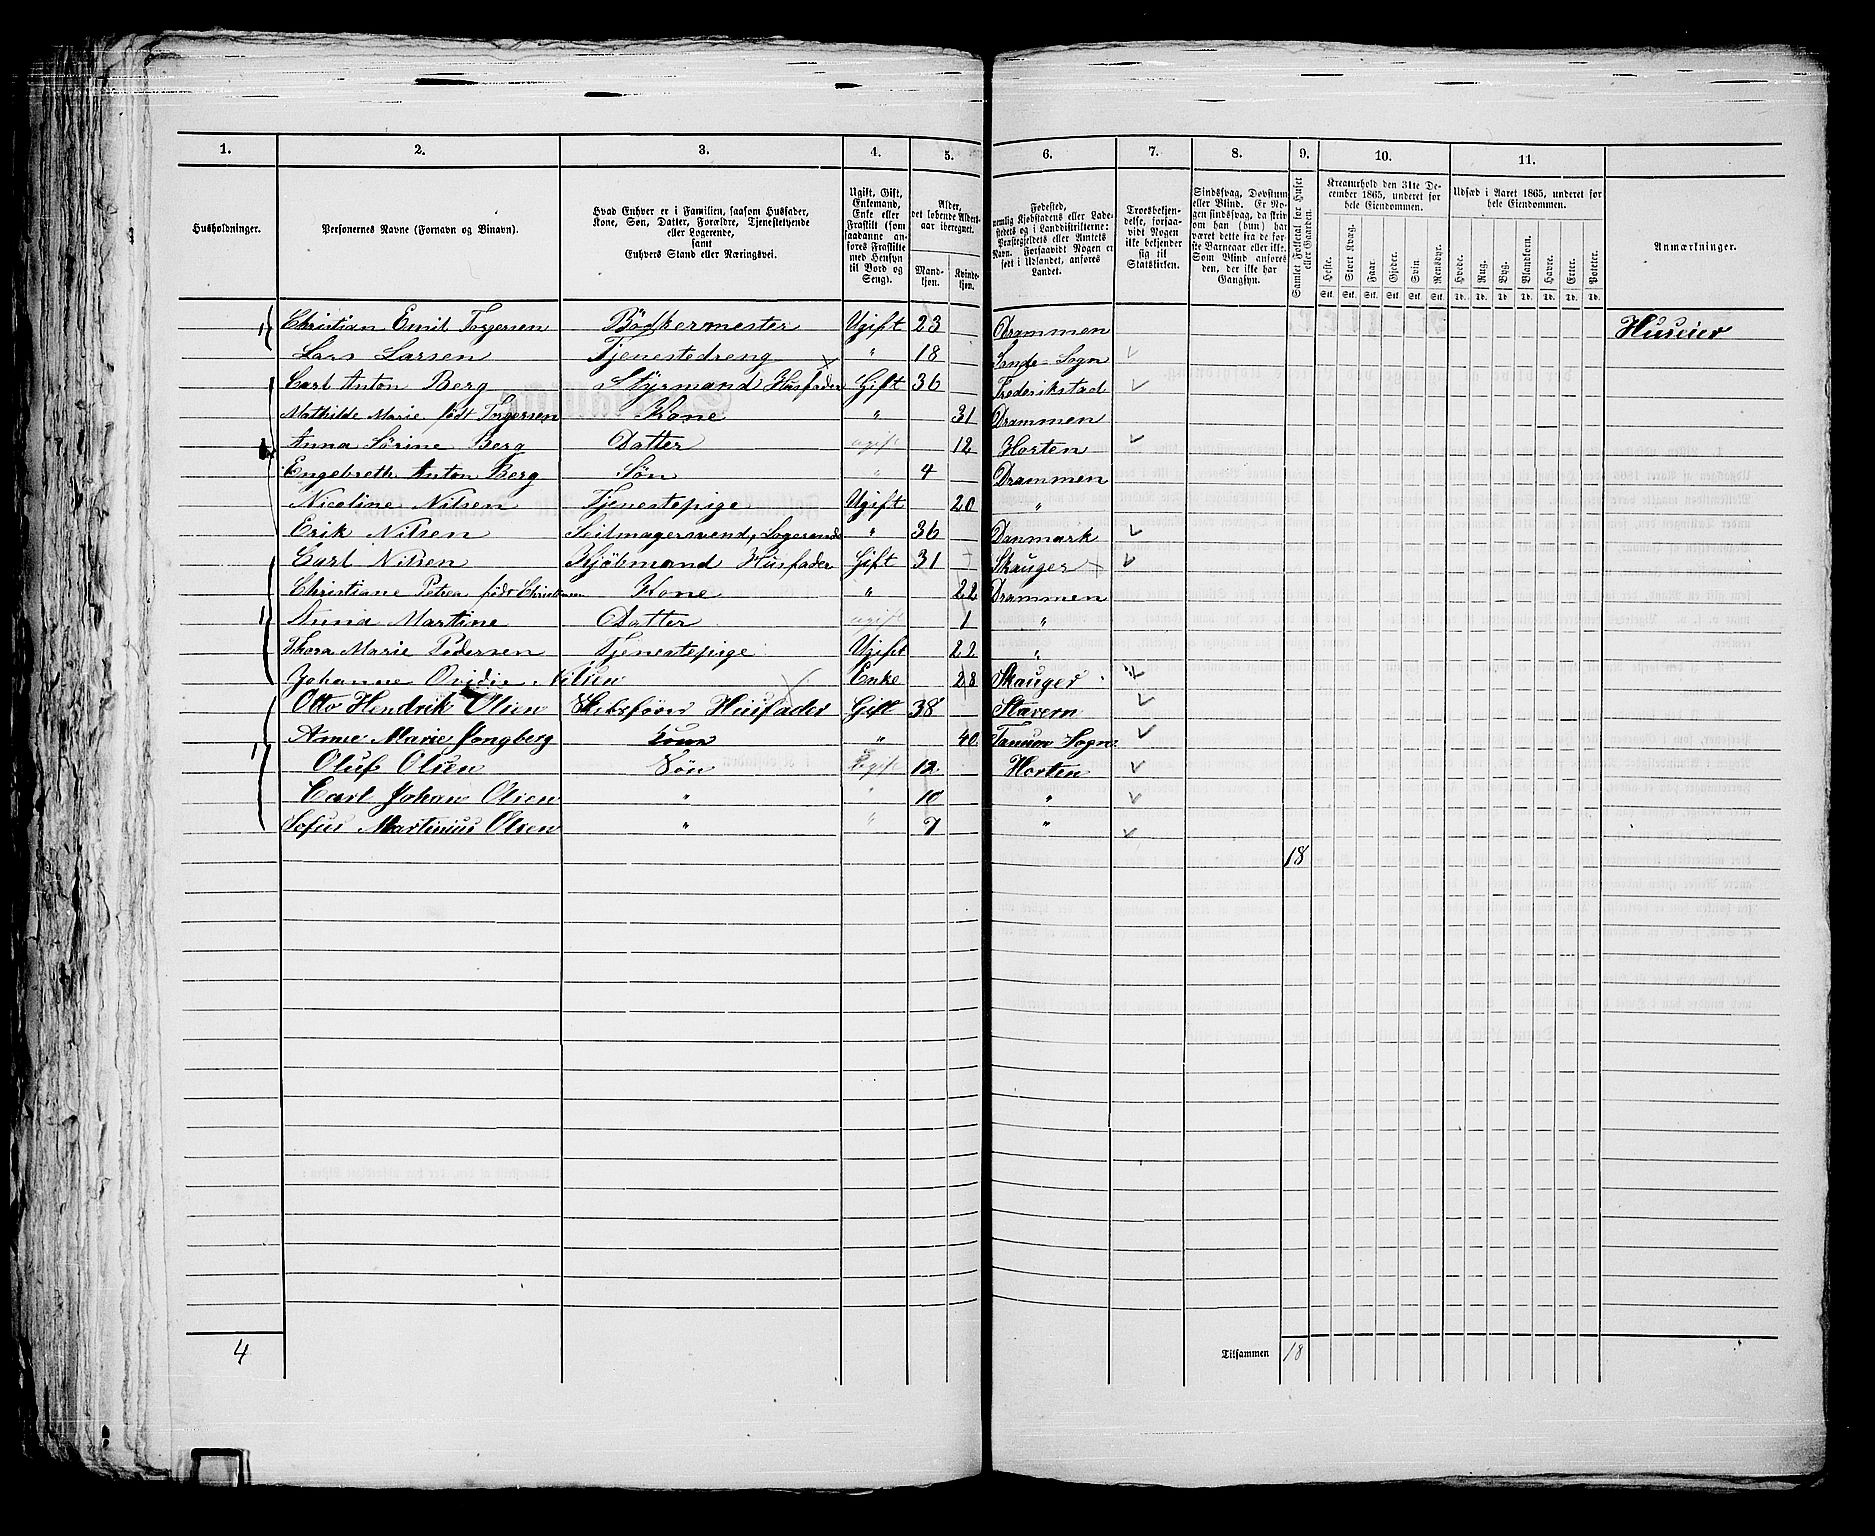 1. 2. 3. 4. 5. 6. 7. 8. 9. 10. 11.
Husholdninger. | Personernes Navne (Fornavn og Binavn). | Hvad Enhver er i Familien, saasom Husfader, Kone, Søn, Datter, Forældre, Tjenestetyende eller Logerende, samt Enhvers Stand eller Næringsvei. | Ugift, Gift, Enkemand, Enke eller Fraskilt (som saadanne anføres Fraskilte med Hensyn til Bord og Seng). | Alder, det løbende Aldersaar iberegnet. Mandkjøn. Kvindekjøn. | Fødested, nemlig Kjøbstadens eller Ladestedets og i Landdistrikterne: Præstegjeldets eller Amtets Navn. Forsaavidt Nogen er født i Udlandet, anføres Landet. | Troesbekjendelse, forsaavidt Nogen ikke bekjender sig til Statskirken. | Sindssvag, Døvstum eller Blind. Er Nogen sindssvag, da skrives om han (hun) har været dette fra de første Barneaar eller ikke. Som Blind anføres den, der ikke har Gangsyn. | Samlet Folketal for Huset eller Gaarden. | Kreaturhold den 31te December 1865, underet for hele Eiendommen. Heste. Stort Kvæg. Faar. Gjeder. Svin. Rensdyr. Stk. Stk. Stk. Stk. Stk. Stk. | Udsæd i Aaret 1865, underet for hele Eiendommen. Hvede. Rug. Byg. Blandkorn. Havre. Erter. Poteter. Td. Td. Td. Td. Td. Td. Td. | Anmærkninger.
1 Christian Emil Torgersen Bödkermester Ugift 23 Drammen Huseier
Lars Larsen Tjenestedreng " 18 Sande Sogn
Carl Anton Berg Styrmand Husfader Gift 36 Frederikstad
Mathilde Marie födt Torgersen Kone " 31 Drammen
Anna Sörine Berg Datter ugift 12 Horten
Engebreth Anton Berg Søn " 4 Drammen
Nicoline Nilsen Tjenestepige Ugift 20 "
Erik Nilsen Seilmagersvend, Logerende " 36 Danmark
Carl Nilsen Kjöbmand Husfader Gift 31 Skauger
Christiane Petrea född Christensen Kone " 22 Drammen
1 Anna Martine Datter ugift 1 "
Thora Marie Pedersen Tjenestepige Ugift 22 "
Johanne Ovidie Nilsen Enke 28 Skauger
Otto Hendrik Olsen Skibsfører Husfader Gift 38 Stavern
Anne Marie Jongberg Kone " 40 Tanum Sogn
1 Oluf Olsen Søn Ugift 12 Horten
Carl Johan Olsen " " 10 "
Sofus Martinius Olsen " " 7 "
18
4 Tilsammen 18